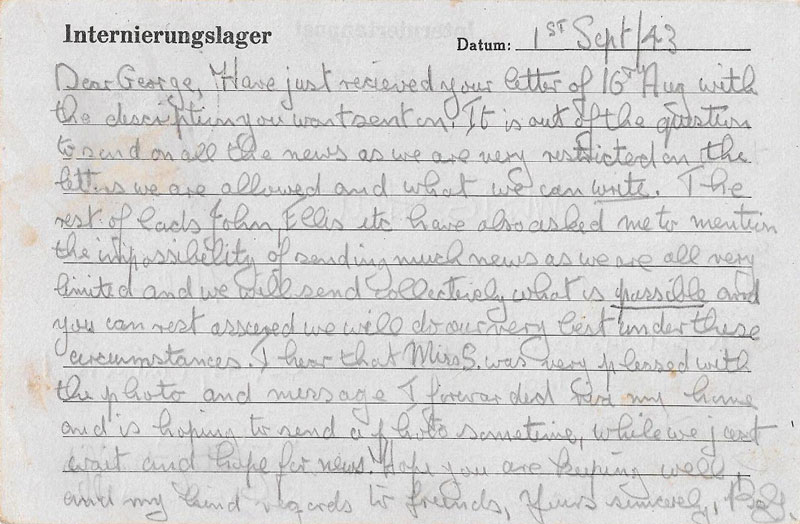 Internierungslager
Datum: 1ST Sept/43
Dear George, Have just recieved your letter of 16T Aug with
the description you want sent on. It is out of the question
to send on all the news as we are very restricted on the
letters we are allowed and what we can write. The
rest of lads John, Ellis etc have also asked me to mention
the impossibility of sending much news as we are all very
limited and we will send collectively what is possible and
you can rest assured we will do our very best under these
circumstances. I hear that Miss S. was very plessed with
the photo and message I forwarded via my home
and is hoping to send a photo sometime, while we just
wait and hope for news. Hope you are keeping well,
and my kind regards to friends, Yours sincerely,